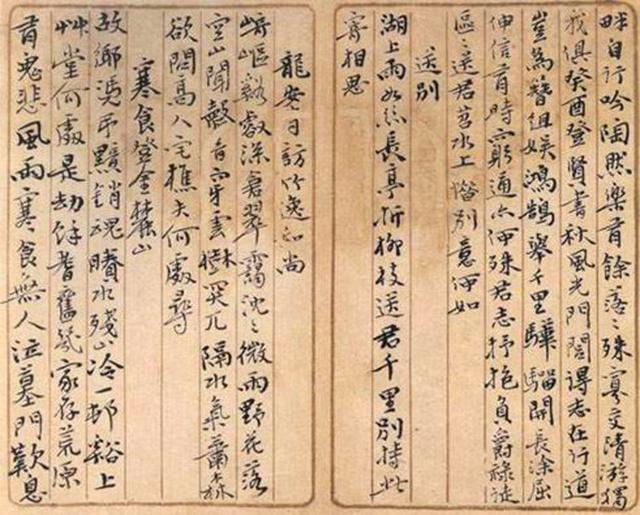 畔自行吟陶然樂有餘落々殊寡交隋游獨
我俱癸酉登賢書秋風光門閭得志在行道
豈為簪組娛鴻鵠舉千里驊騮開長涂屈
伸信有時窮通亦何殊君志抒抱負爵祿徒
區々送君苕水上惜別意何如
送別
湖上雨如絲長亭折柳枝送君千里別持此
寄相思
龍安日訪竹逸和尚
崎嶇谿壑深蒼翠靄沈々微雨野花落
空山聞磬音穿雲樹突兀隔水氣蕭森
欲問高人宅樵夫何處尋
寒食登金麓山
故鄉憑弔黯銷魂賸水殘山冷一邨谿上
艸堂何處是劫餘耆舊幾家存荒原
有鬼悲風雨寒食無人泣墓門歎息